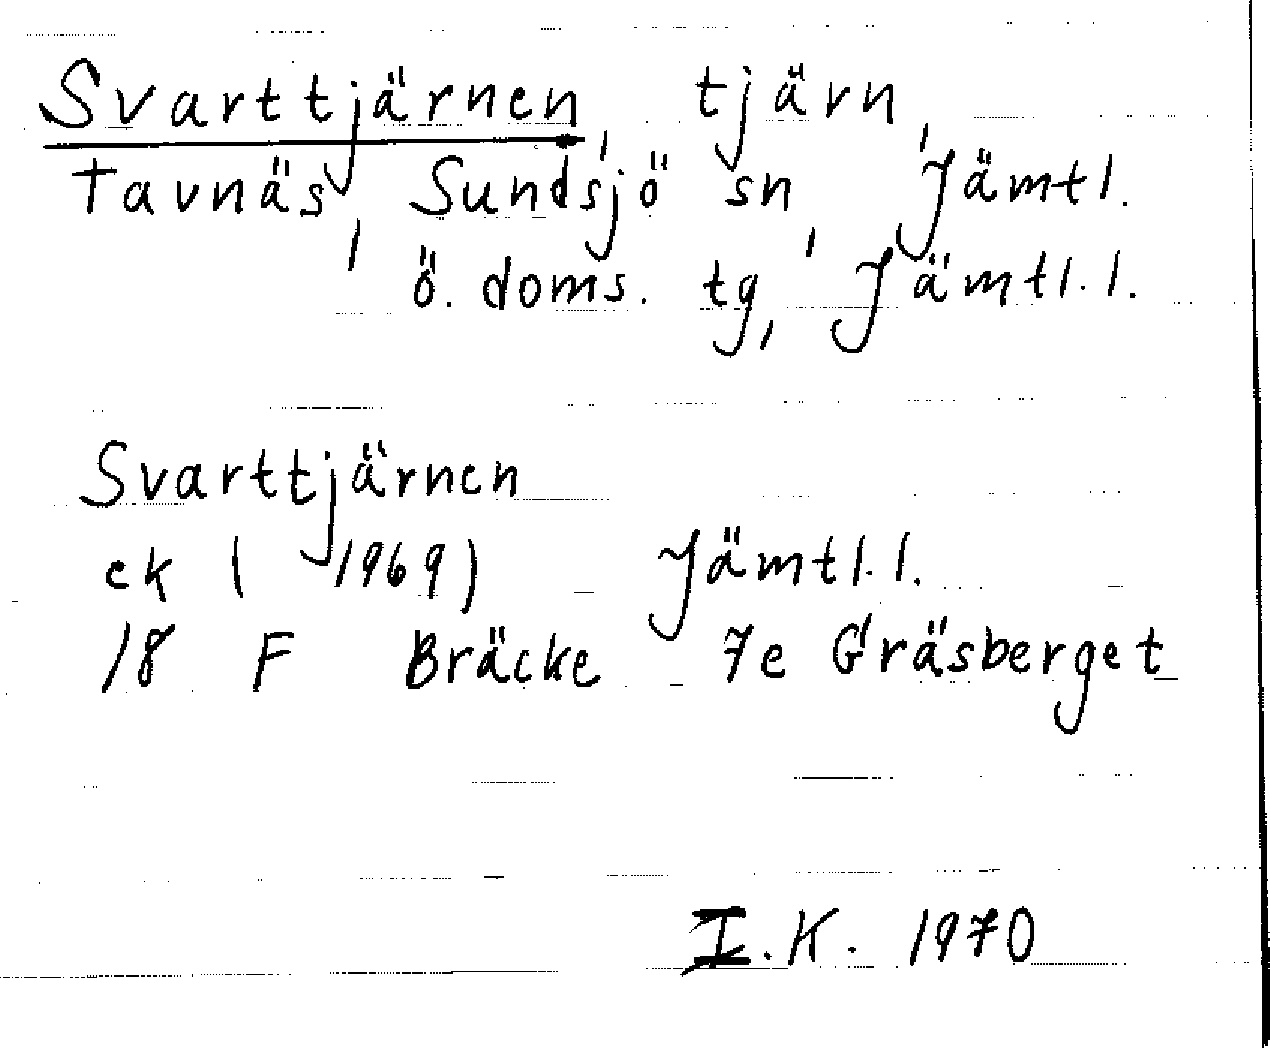 Svarttjärnen, tjärn,
Tavnäs, Sundsjö sn, Jämtl.
ö. doms. tg, Jämtl. l.
Svarttjärnen
ek ( 1969) Jämtl. l.
18 F Bräcke 7e Gräsberget
I.K. 1970